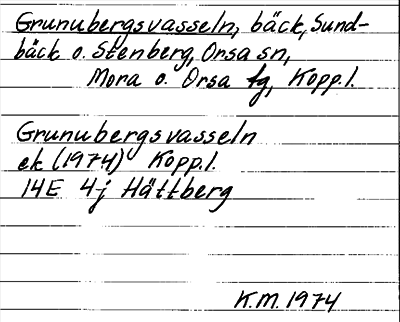 Grunubergsvasseln, bäck, Sund-
bäck o. Stenberg, Orsa sn,
Mora o. Orsa tg, Kopp.l.
Grunubergsvasseln
ek (1974) Kopp.l.
14E 4j Hättberg
K.M. 1974